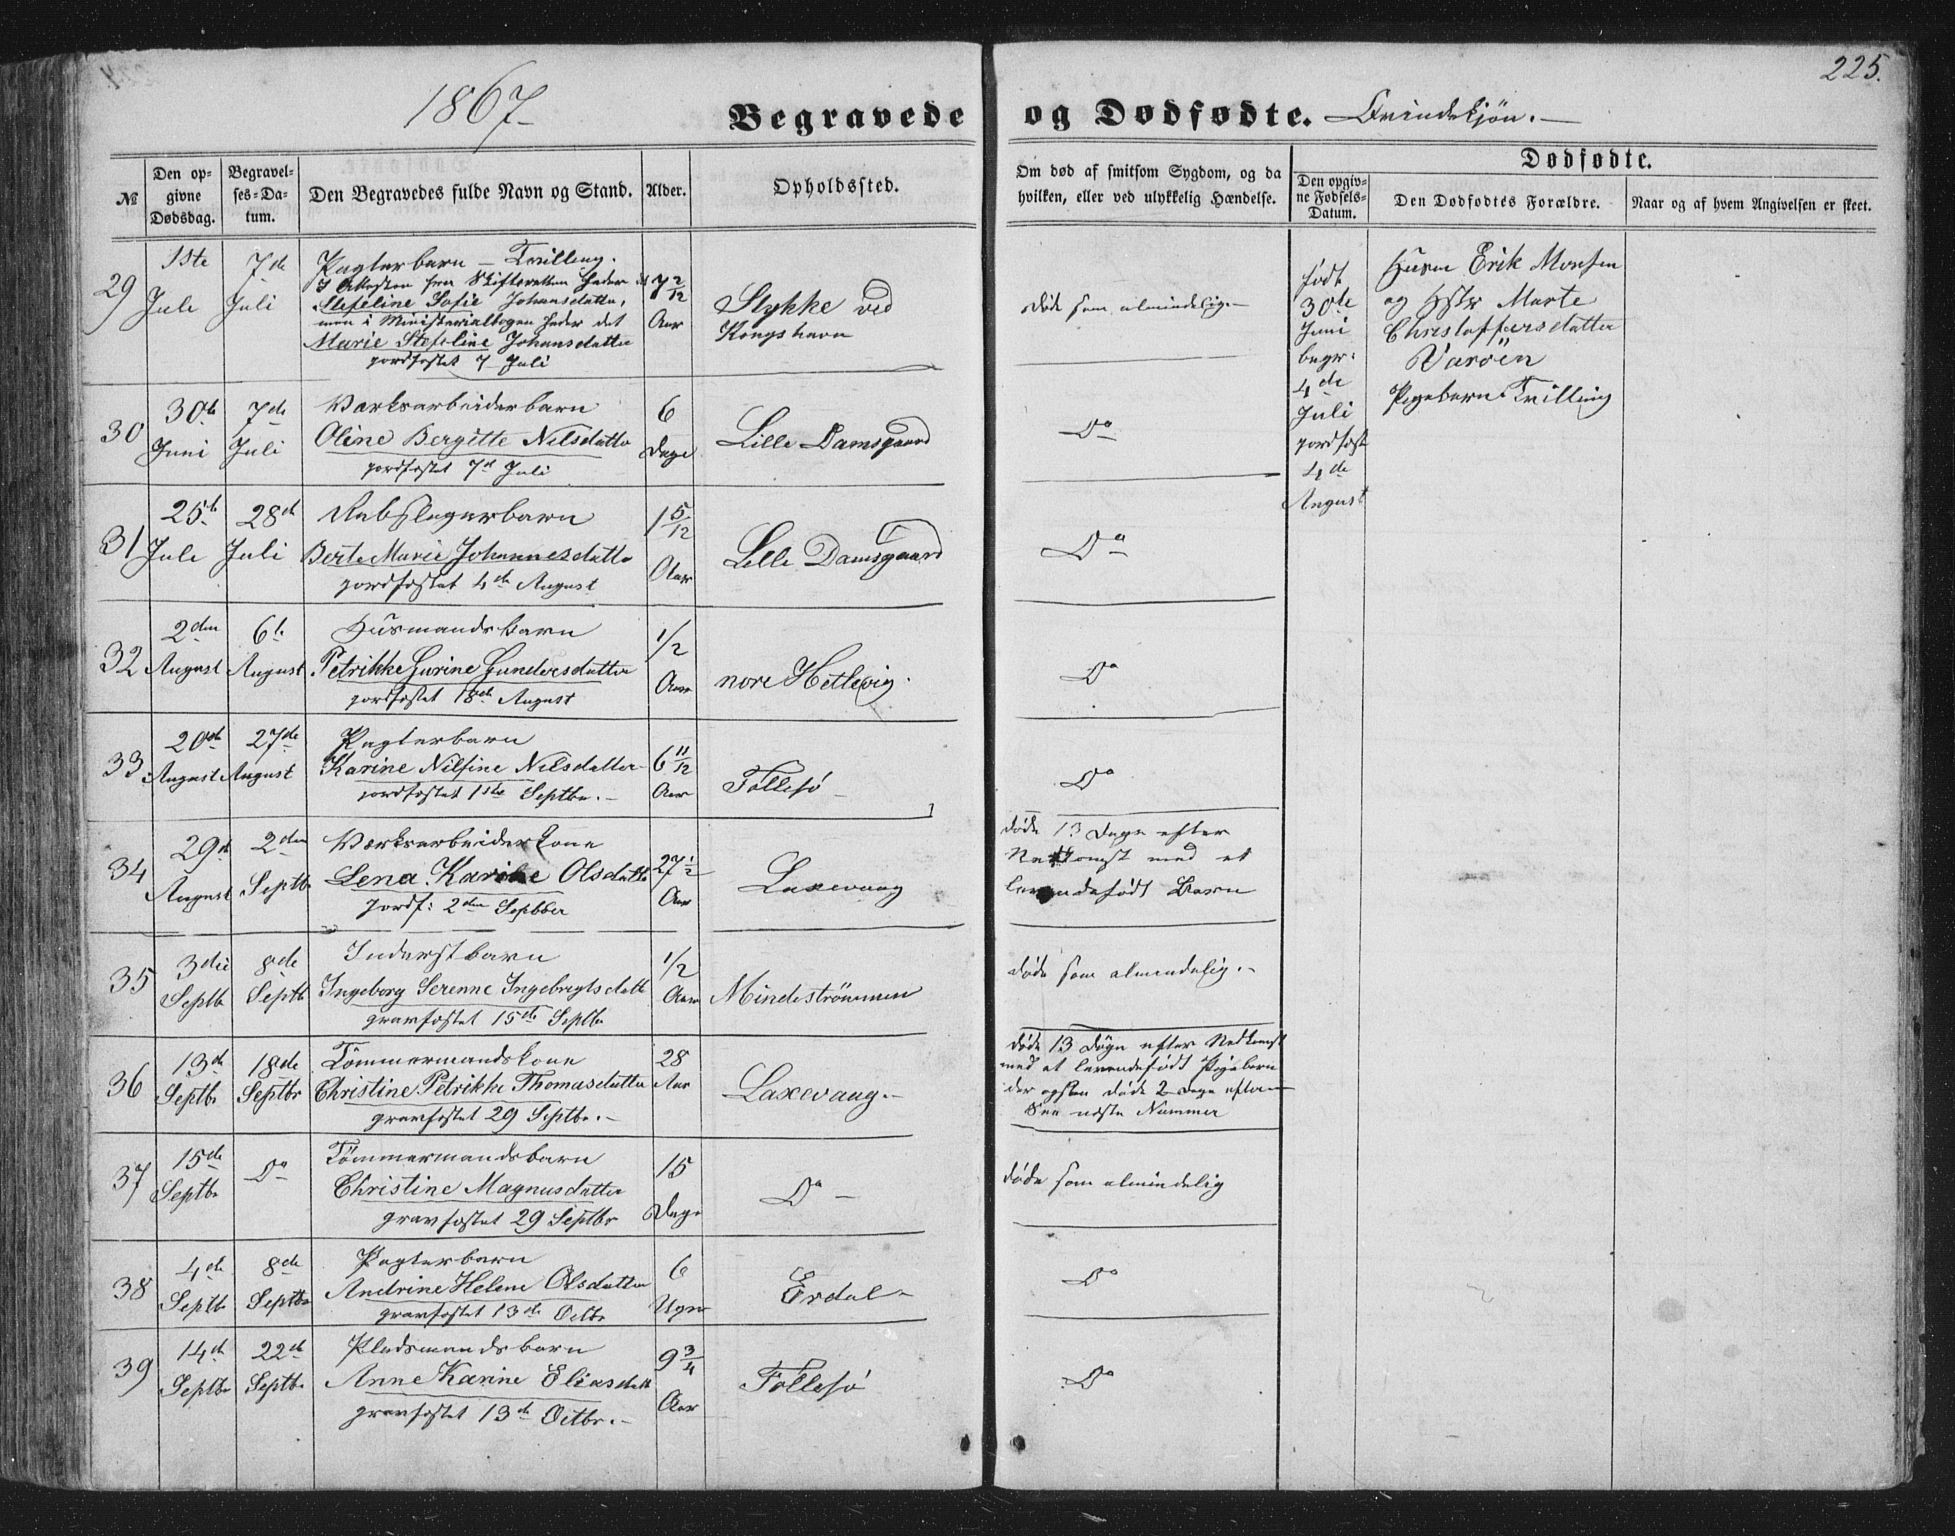 225.
1867
Begravede og Dødfødte. Qvindekjön.
№
Den opgivne Dødsdag.
Begravelses-Datum.
Den Begravedes fulde Navn og Stand.
Alder.
Opholdssted.
Om død af smitsom Sygdom, og da hvilken, eller ved ulykkelig Hændelse.
Dødfødte.
Den opgivne Fødsels-Datum.
Den Dødfødtes Forældre.
Naar og af hvem Angivelsen er skeet.
29
1ste Juli
7de Juli
Pagterbarn – Tvilling.
I Attesten fra Skifteretten heder det
Stefeline Sofie Johansdatter,
men i Ministerialbogen heder det
Marie Stefeline Johansdatter
jordfæstet 7 Juli
7 2/12 Aar
Stykke ved
Kongshavn
Døde som almindelig.
født
30te
Juni
begr:
4de
Juli
jordfæst
4de
August
Husm Erik Monsen
og Hstr Marte
Christoffersdatter
Varöen
Pigebarn Tvilling
30
30te Juni
7de Juli
Værksarbeiderbarn
Oline Bergitte Nilsdatter
jordfæstet 7de Juli
6 Dage
Lille Damsgaard
Do
31
25de Juli
28de Juli
Rebslagerbarn
Berte Marie Johannesdatter
jordfæstet 4de August
1 5/12 Aar
Lille Damsgaard
Do
32
2den August
6te August
Husmandsbarn
Petrikke Gurine Gundersdatter
jordfæstet 18de August
1/2 Aar
nore Hetlevig.
Do
33
20de August
27de August
Pagterbarn
Karine Nilsine Nilsdatter
jordfæstet 1ste Septbr.
6 11/12 Aar
Follesø
Do
34
29de August
2den Septb
Værksarbeiderkone
Lena Karine Olsdatter
jordf: 2den Septbber
27 1/2 Aar
Laxevaag
døde 13 Dage efter
Nedkomst med et
levendefödt Barn
35
3die Septb
8de Septb
Inderstbarn
Ingeborg Serenne Ingebregtsdatt
gravfæstet 15de Septbr
1/2 Aar
Mindeströmmen
døde som almindelig.
36
13de Septbr
18de Septbr
Tömmermandskone
Christine Petrikke Thomasdatter
gravfæstet 29 Septbr.
28 Aar
Laxevaag.
døde 13 Døgn efter Nedkomst
med et levendefödt Pigebarn
der ogsaa döde 2 Dage efter
See næste Nummer
37
15de Septbr
Do
Tømmermandsbarn
Christine Magnusdatter
gravfæstet 29 Septbr
15 Dage
Do
døde som almindelig
38
4de Septbr
8de Septbr
Pagterbarn
Andrine Helene Olsdatter
gravfæstet 13de Octbr
6 Uger
Erdal
Do
39
14de Septbr
22de Septbr
Pladsmandsbarn
Anne Karine Eliasdatt
gravfæstet 13de Octbr.
9 3/4 Aar
Follesø
Do